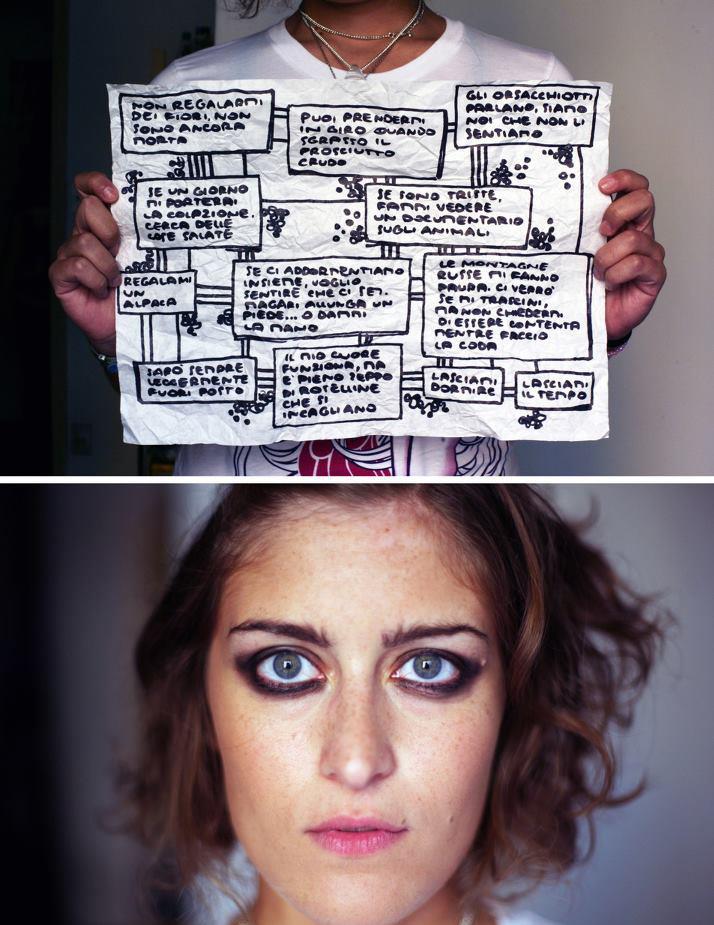 NON REGALARMI
DEI FIORI, NON
SONO ANCORA
MORTA
PUOI PRENDERMI
IN GIRO QUANDO
SGRASSO IL
PROSCIUTTO
CRUDO
GLI ORSACCHIOTTI
PARLANO, SIAMO
NOI CHE NON LI
SENTIAMO
SE UN GIORNO
MI PORTERAI
LA COLAZIONE,
CERCA DELLE
COSE SALATE
SE SONO TRISTE,
FAMMI VEDERE
UN DOCUMENTARIO
SUGLI ANIMALI
REGALAMI
UN
ALPACA
SE CI ADDORMENTIAMO
INSIEME, VOGLIO
SENTIRE CHE CI SEI.
MAGARI ALLUNGA UN
PIEDE... O DAMMI
LA MANO
LE MONTAGNE
RUSSE MI FANNO
PAURA. CI VERRÒ
SE MI TRASCINI,
MA NON CHIEDERMI
DI ESSERE CONTENTA
MENTRE FACCIO
LA CODA
SARÒ SEMPRE
LEGGERMENTE
FUORI POSTO
IL MIO CUORE
FUNZIONA, MA
E' PIENO ZEPPO
DI ROTELLINE
CHE SI
INCAGLIANO
LASCIAMI
DORMIRE
LASCIAMI
IL TEMPO